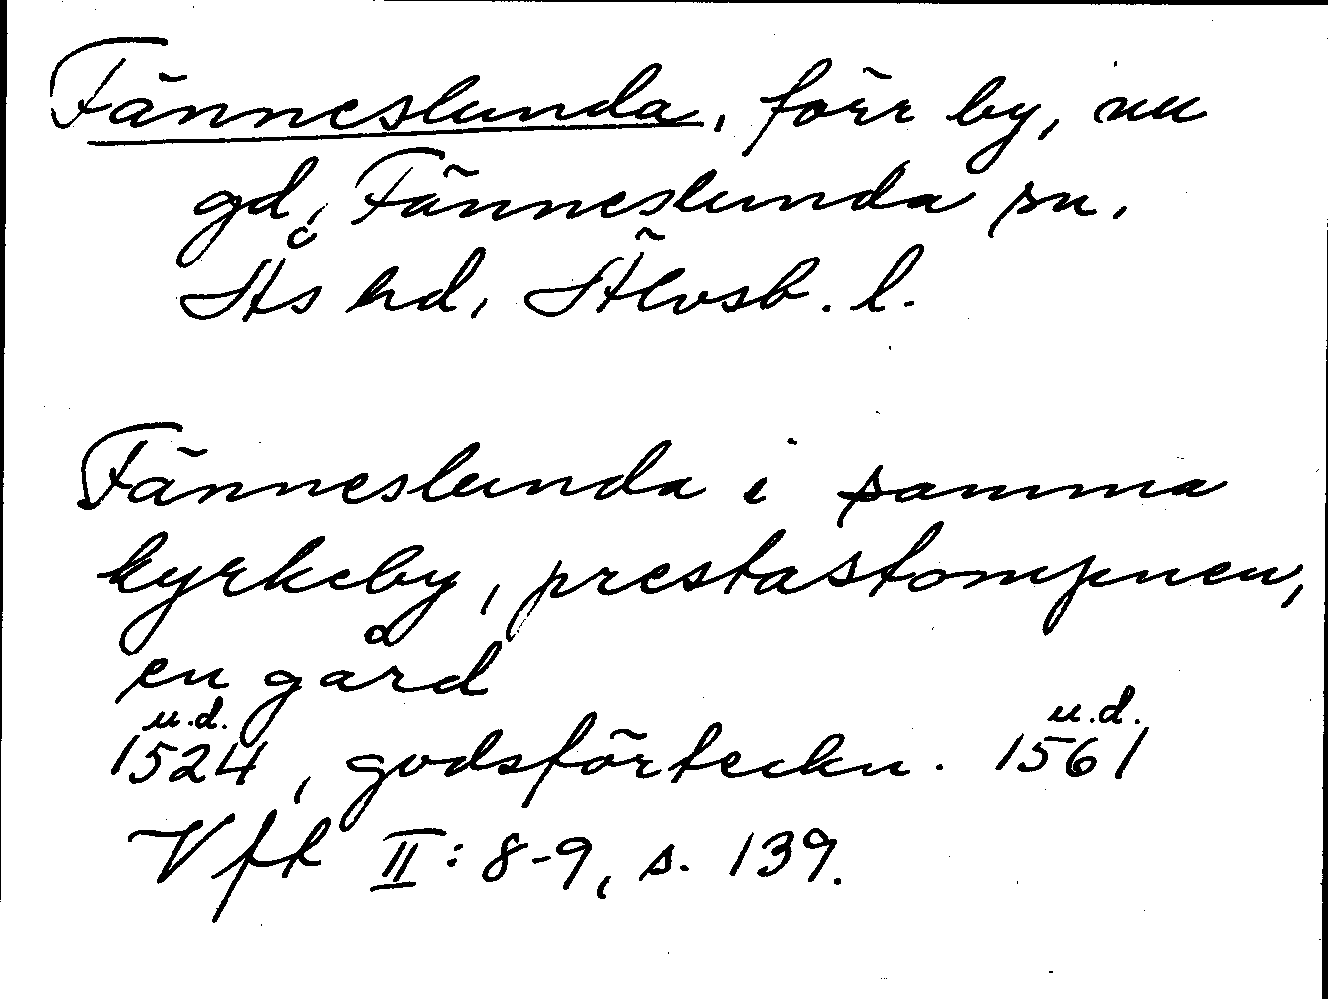 Fänneslunda, förr by, nu
gd, Fänneslunda sn.
Ås hd, Älvsb. l.
Fänneslunda i samma
kyrkeby, prestastompnen,
en gård
u.d. u.d.
1524, godsförteckn. 1561
Vfk II: 8-9, s. 139.